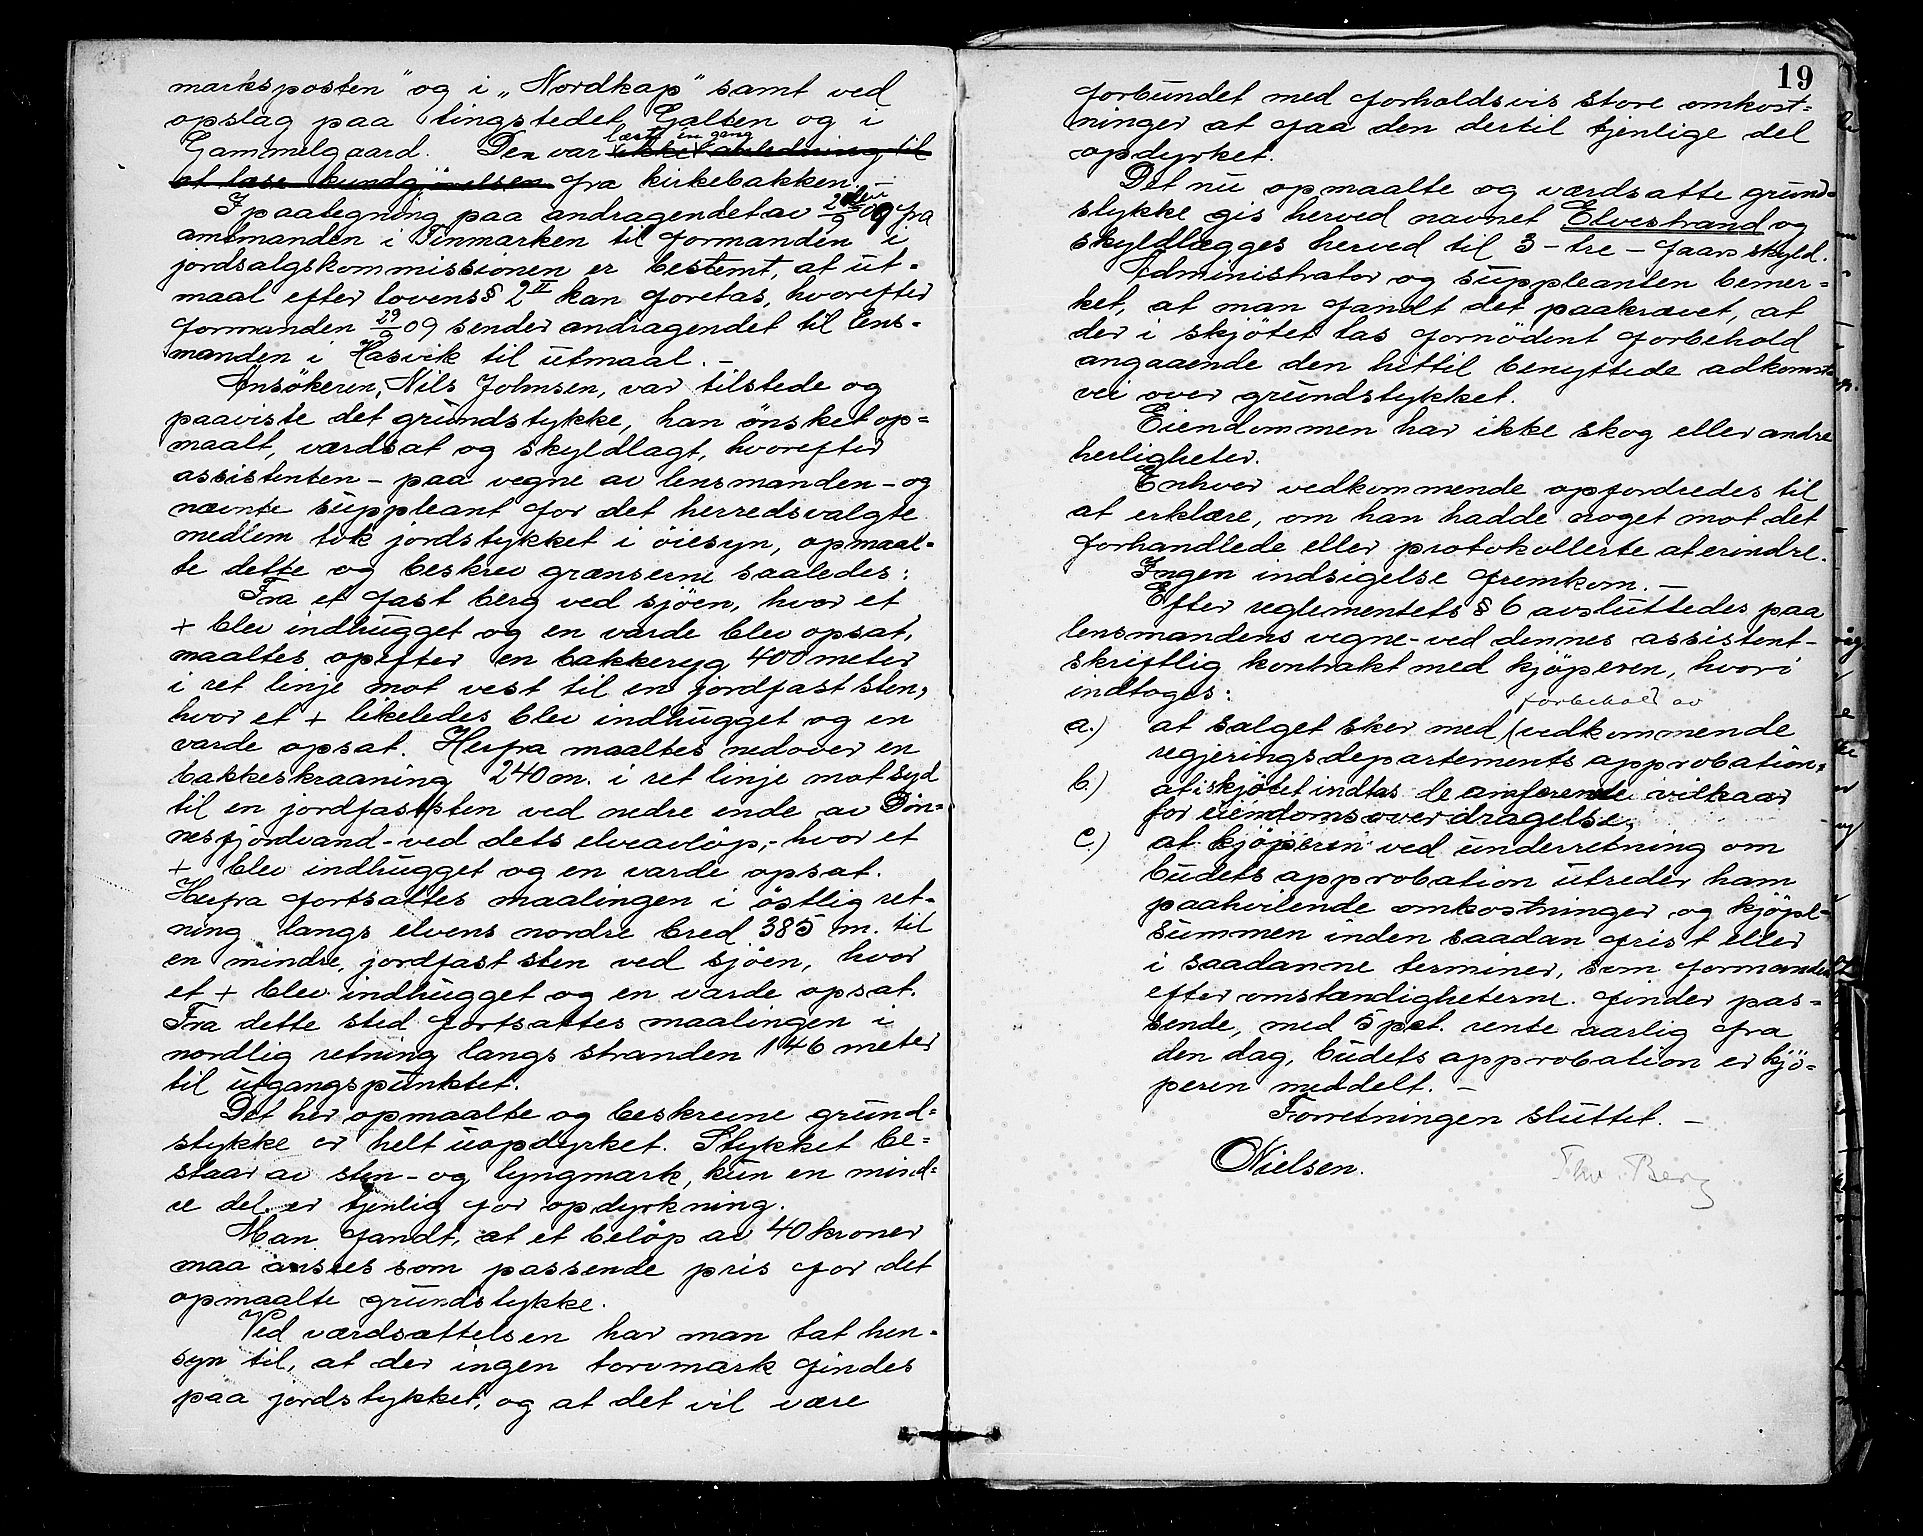 marksposten" og i „Nordkap" samt ved
opslag paa tingstedet Galten og i
Gammelgaard. Den var læst en gang ikke anledning til
at læse kundgjörelsen fra kirkebakken. –
I paategning paa andragendet av 09 fra
amtmanden i Finmarken til formanden i
jordsalgskommissionen er bestemt, at ut-
maal efter lovens § 2 II kan foretas, hvorefter
formanden 29/9 09 sender andragendet til lens-
manden i Hasvik til utmaal. –
Ansökeren, Nils Johnsen, var tilstede og
paaviste det grundstykke, han önsket op-
maalt, værdsat og skyldlagt, hvorefter
assistenten – paa vegne av lensmanden – og
nævnte suppleant for det herredsvalgte
medlem tok jordstykket i öiesyn, opmaal-
te dette og beskrev grænserne saaledes:
Fra et fast berg ved sjöen, hvor et
+ blev indhugget og en varde blev opsat,
maaltes opefter en bakkeryg 400 meter
i ret linje mot vest til en jordfast sten,
hvor et + likeledes blev indhugget og en
varde opsat. Herfra maaltes nedover en
bakkeskraaning 240 m. i ret linje mot syd
til en jordfast sten ved nedre ende av Dön-
nesfjordvand – ved dets elveavlöp, – hvor et
+ blev indhugget og en varde opsat.
Herfra fortsattes maalingen i östlig ret-
ning langs elvens nordre bred 385 m. til
en mindre, jordfast sten ved sjöen, hvor
et + blev indhugget og en varde opsat.
Fra dette sted fortsattes maalingen i
nordlig retning langs stranden 146 meter
til utgangspunktet.
Det her opmaalte og beskrevne grund-
stykke er helt uopdyrket. Stykket be-
staar av sten- og lyngmark, kun en mind-
re del er tjenlig for opdyrkning.
Man fandt, at et belöp av 40 kroner
maa ansees som passende pris for det
opmaalte grundstykke.
Ved værdsættelsen har man tat hen-
syn til, at der ingen torvmark findes
paa jordstykket, og at det vil være
19
forbundet med forholdsvis store omkost-
ninger at faa den dertil tjenlige del
opdyrket.
Det nu opmaalte og værdsatte grund-
stykke gis herved navnet Elvestrand og
skyldlægges herved til 3 – tre – faars skyld.
Administrator og suppleanten bemer-
ket, at man fandt det paakrævet, at
der i skjötet tas fornödent forbehold
angaaende den hittil benyttede adkomst-
vei over grundstykket.
Eiendommen har ikke skog eller andre
herligheter.
Enhver vedkommende opfordredes til
at erklære, om han hadde noget mot det
forhandlede eller protokollerte at erindre.
Ingen indsigelse fremkom. –
Efter reglementets § 6 avsluttedes paa
lensmandens vegne – ved dennes assistent –
skriftlig kontrakt med kjöperen, hvori
indtoges:
a.) at salget sker med forbehold av vedkommende
regjeringsdepartements approbation,
b.) at i skjötet indtas de anförende vilkaar
for eiendomsoverdragelse,
c.) at kjöperen ved underretning om
budets approbation utreder ham
paahvilende omkostninger og kjöpe-
summen inden saadan frist eller
i saadanne terminer, som formanden
efter omstændigheterne finder pas-
sende, med 5 pct. rente aarlig fra
den dag, budets approbation er kjö-
peren meddelt. –
Forretningen sluttet. –
Nielsen. Thv. Berg